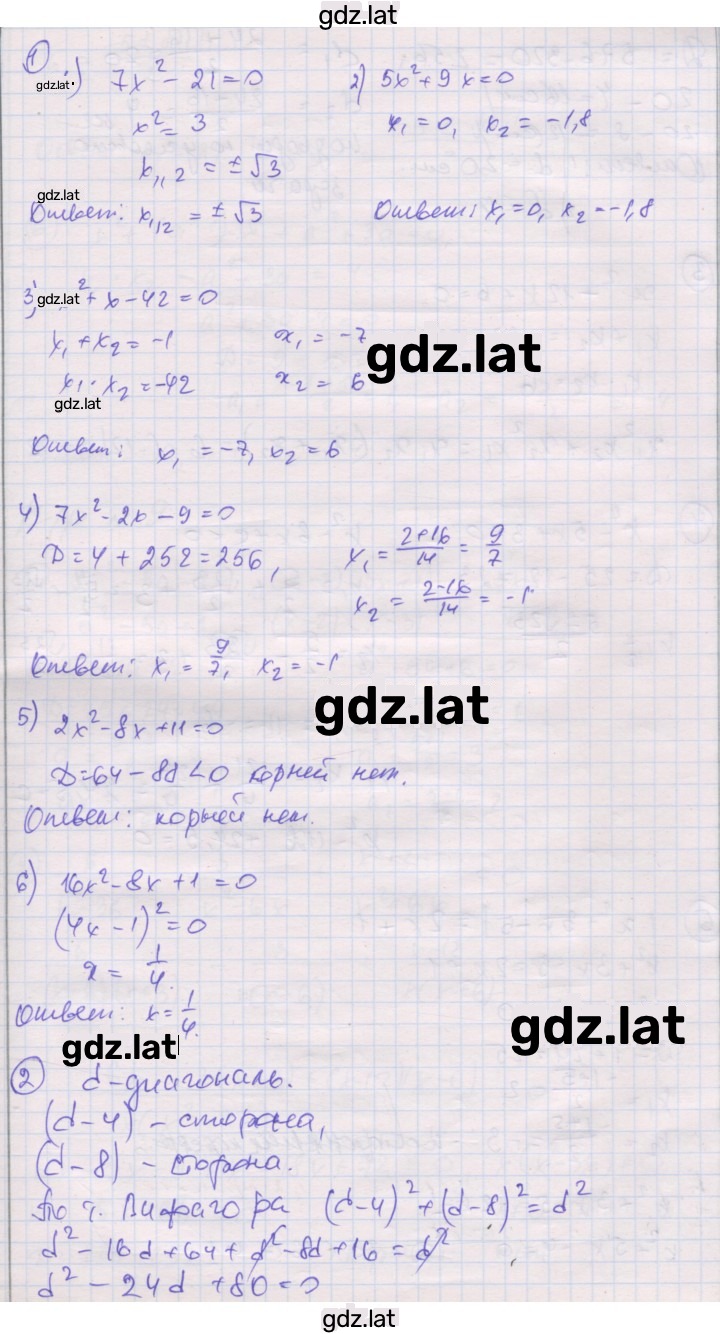 gdz.lat
1
gdz.lat
1) 7x² - 21 = 0
x² = 3
x₁,₂ = ±√3
gdz.lat
Ответ: x₁,₂ = ±√3
2) 5x² + 9x = 0
x₁ = 0, x₂ = -1,8
Ответ: x₁ = 0, x₂ = -1,8
3) gdz.lat ² + x - 42 = 0
x₁ + x₂ = -1
x₁ · x₂ = -42
gdz.lat
x₁ = -7
x₂ = 6
gdz.lat
Ответ: x₁ = -7, x₂ = 6
4) 7x² - 2x - 9 = 0
D = 4 + 252 = 256,
x₁ = (2+16)/14 = 9/7
x₂ = (2-16)/14 = -1
Ответ: x₁ = 9/7, x₂ = -1
gdz.lat
5) 2x² - 8x + 11 = 0
D = 64 - 88 < 0 корней нет.
Ответ: корней нет.
6) 16x² - 8x + 1 = 0
(4x - 1)² = 0
x = 1/4.
Ответ: x = 1/4.
gdz.lat
gdz.lat
2 d - диагональ.
(d - 4) - сторона,
(d - 8) - сторона.
По т. Пифагора (d - 4)² + (d - 8)² = d²
d² - 16d + 64 + d² - 8d + 16 = d²
d² - 24d + 80 = 0
gdz.lat